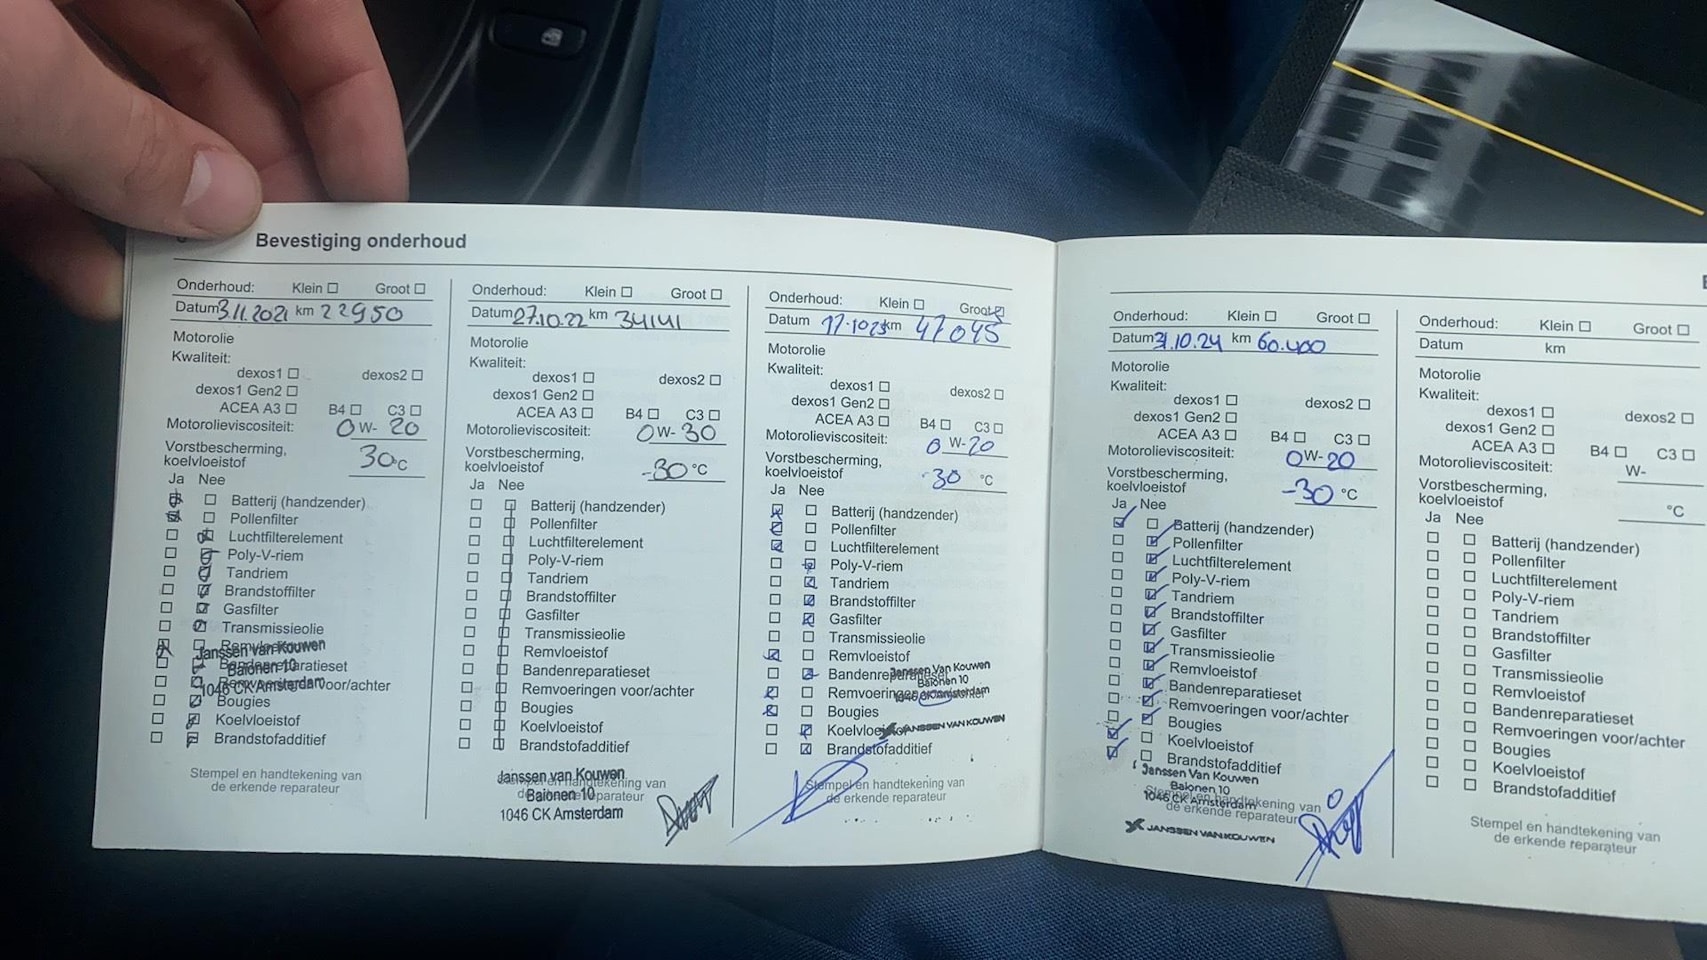 Bevestiging onderhoud
Onderhoud: Klein ☐ Groot ☐
Datum 3.11.2021 km 22950
Motorolie
Kwaliteit:
dexos1 ☐ dexos2 ☐
dexos1 Gen2 ☐
ACEA A3 ☐ B4 ☐ C3 ☐
Motorolieviscositeit: 0 W- 20
Vorstbescherming,
koelvloeistof 30°C
Ja Nee
Batterij (handzender)
Pollenfilter
Luchtfilterelement
Poly-V-riem
Tandriem
Brandstoffilter
Gasfilter
Transmissieolie
Remvloeistof
Janssen van Kouwen
Bandenreparatieset
Balonen 10
Remvoeringen voor/achter
1046 CK Amsterdam
Bougies
Koelvloeistof
Brandstofadditief
Stempel en handtekening van
de erkende reparateur
Onderhoud: Klein ☐ Groot ☐
Datum 27.10.22 km 34141
Motorolie
Kwaliteit:
dexos1 ☐ dexos2 ☐
dexos1 Gen2 ☐
ACEA A3 ☐ B4 ☐ C3 ☐
Motorolieviscositeit: 0 W- 30
Vorstbescherming,
koelvloeistof -30 °C
Ja Nee
Batterij (handzender)
Pollenfilter
Luchtfilterelement
Poly-V-riem
Tandriem
Brandstoffilter
Gasfilter
Transmissieolie
Remvloeistof
Bandenreparatieset
Remvoeringen voor/achter
Bougies
Koelvloeistof
Brandstofadditief
Janssen van Kouwen
Stempel en handtekening van
Balonen 10
de erkende reparateur
1046 CK Amsterdam
Onderhoud: Klein ☐ Groot ☑
Datum 17.1023 km 47045
Motorolie
Kwaliteit:
dexos1 ☐ dexos2 ☐
dexos1 Gen2 ☐
ACEA A3 ☐ B4 ☐ C3 ☐
Motorolieviscositeit: 0 W- 20
Vorstbescherming,
koelvloeistof -30 °C
Ja Nee
Batterij (handzender)
Pollenfilter
Luchtfilterelement
Poly-V-riem
Tandriem
Brandstoffilter
Gasfilter
Transmissieolie
Remvloeistof
Janssen Van Kouwen
Bandenreparatieset
Balonen 10
Remvoeringen voor/achter
1046 CK Amsterdam
Bougies
JANSSEN VAN KOUWEN
Koelvloeistof
Brandstofadditief
Stempel en handtekening van
de erkende reparateur
Onderhoud: Klein ☐ Groot ☐
Datum 31.10.24 km 60.400
Motorolie
Kwaliteit:
dexos1 ☐ dexos2 ☐
dexos1 Gen2 ☐
ACEA A3 ☐ B4 ☐ C3 ☐
Motorolieviscositeit: 0 W- 20
Vorstbescherming,
koelvloeistof -30 °C
Ja Nee
Batterij (handzender)
Pollenfilter
Luchtfilterelement
Poly-V-riem
Tandriem
Brandstoffilter
Gasfilter
Transmissieolie
Remvloeistof
Bandenreparatieset
Remvoeringen voor/achter
Bougies
Koelvloeistof
Brandstofadditief
Janssen Van Kouwen
Balonen 10
Stempel en handtekening van
1046 CK Amsterdam
de erkende reparateur
JANSSEN VAN KOUWEN
Onderhoud: Klein ☐ Groot ☐
Datum km
Motorolie
Kwaliteit:
dexos1 ☐ dexos2 ☐
dexos1 Gen2 ☐
ACEA A3 ☐ B4 ☐ C3 ☐
Motorolieviscositeit: W-
Vorstbescherming,
koelvloeistof °C
Ja Nee
Batterij (handzender)
Pollenfilter
Luchtfilterelement
Poly-V-riem
Tandriem
Brandstoffilter
Gasfilter
Transmissieolie
Remvloeistof
Bandenreparatieset
Remvoeringen voor/achter
Bougies
Koelvloeistof
Brandstofadditief
Stempel en handtekening van
de erkende reparateur